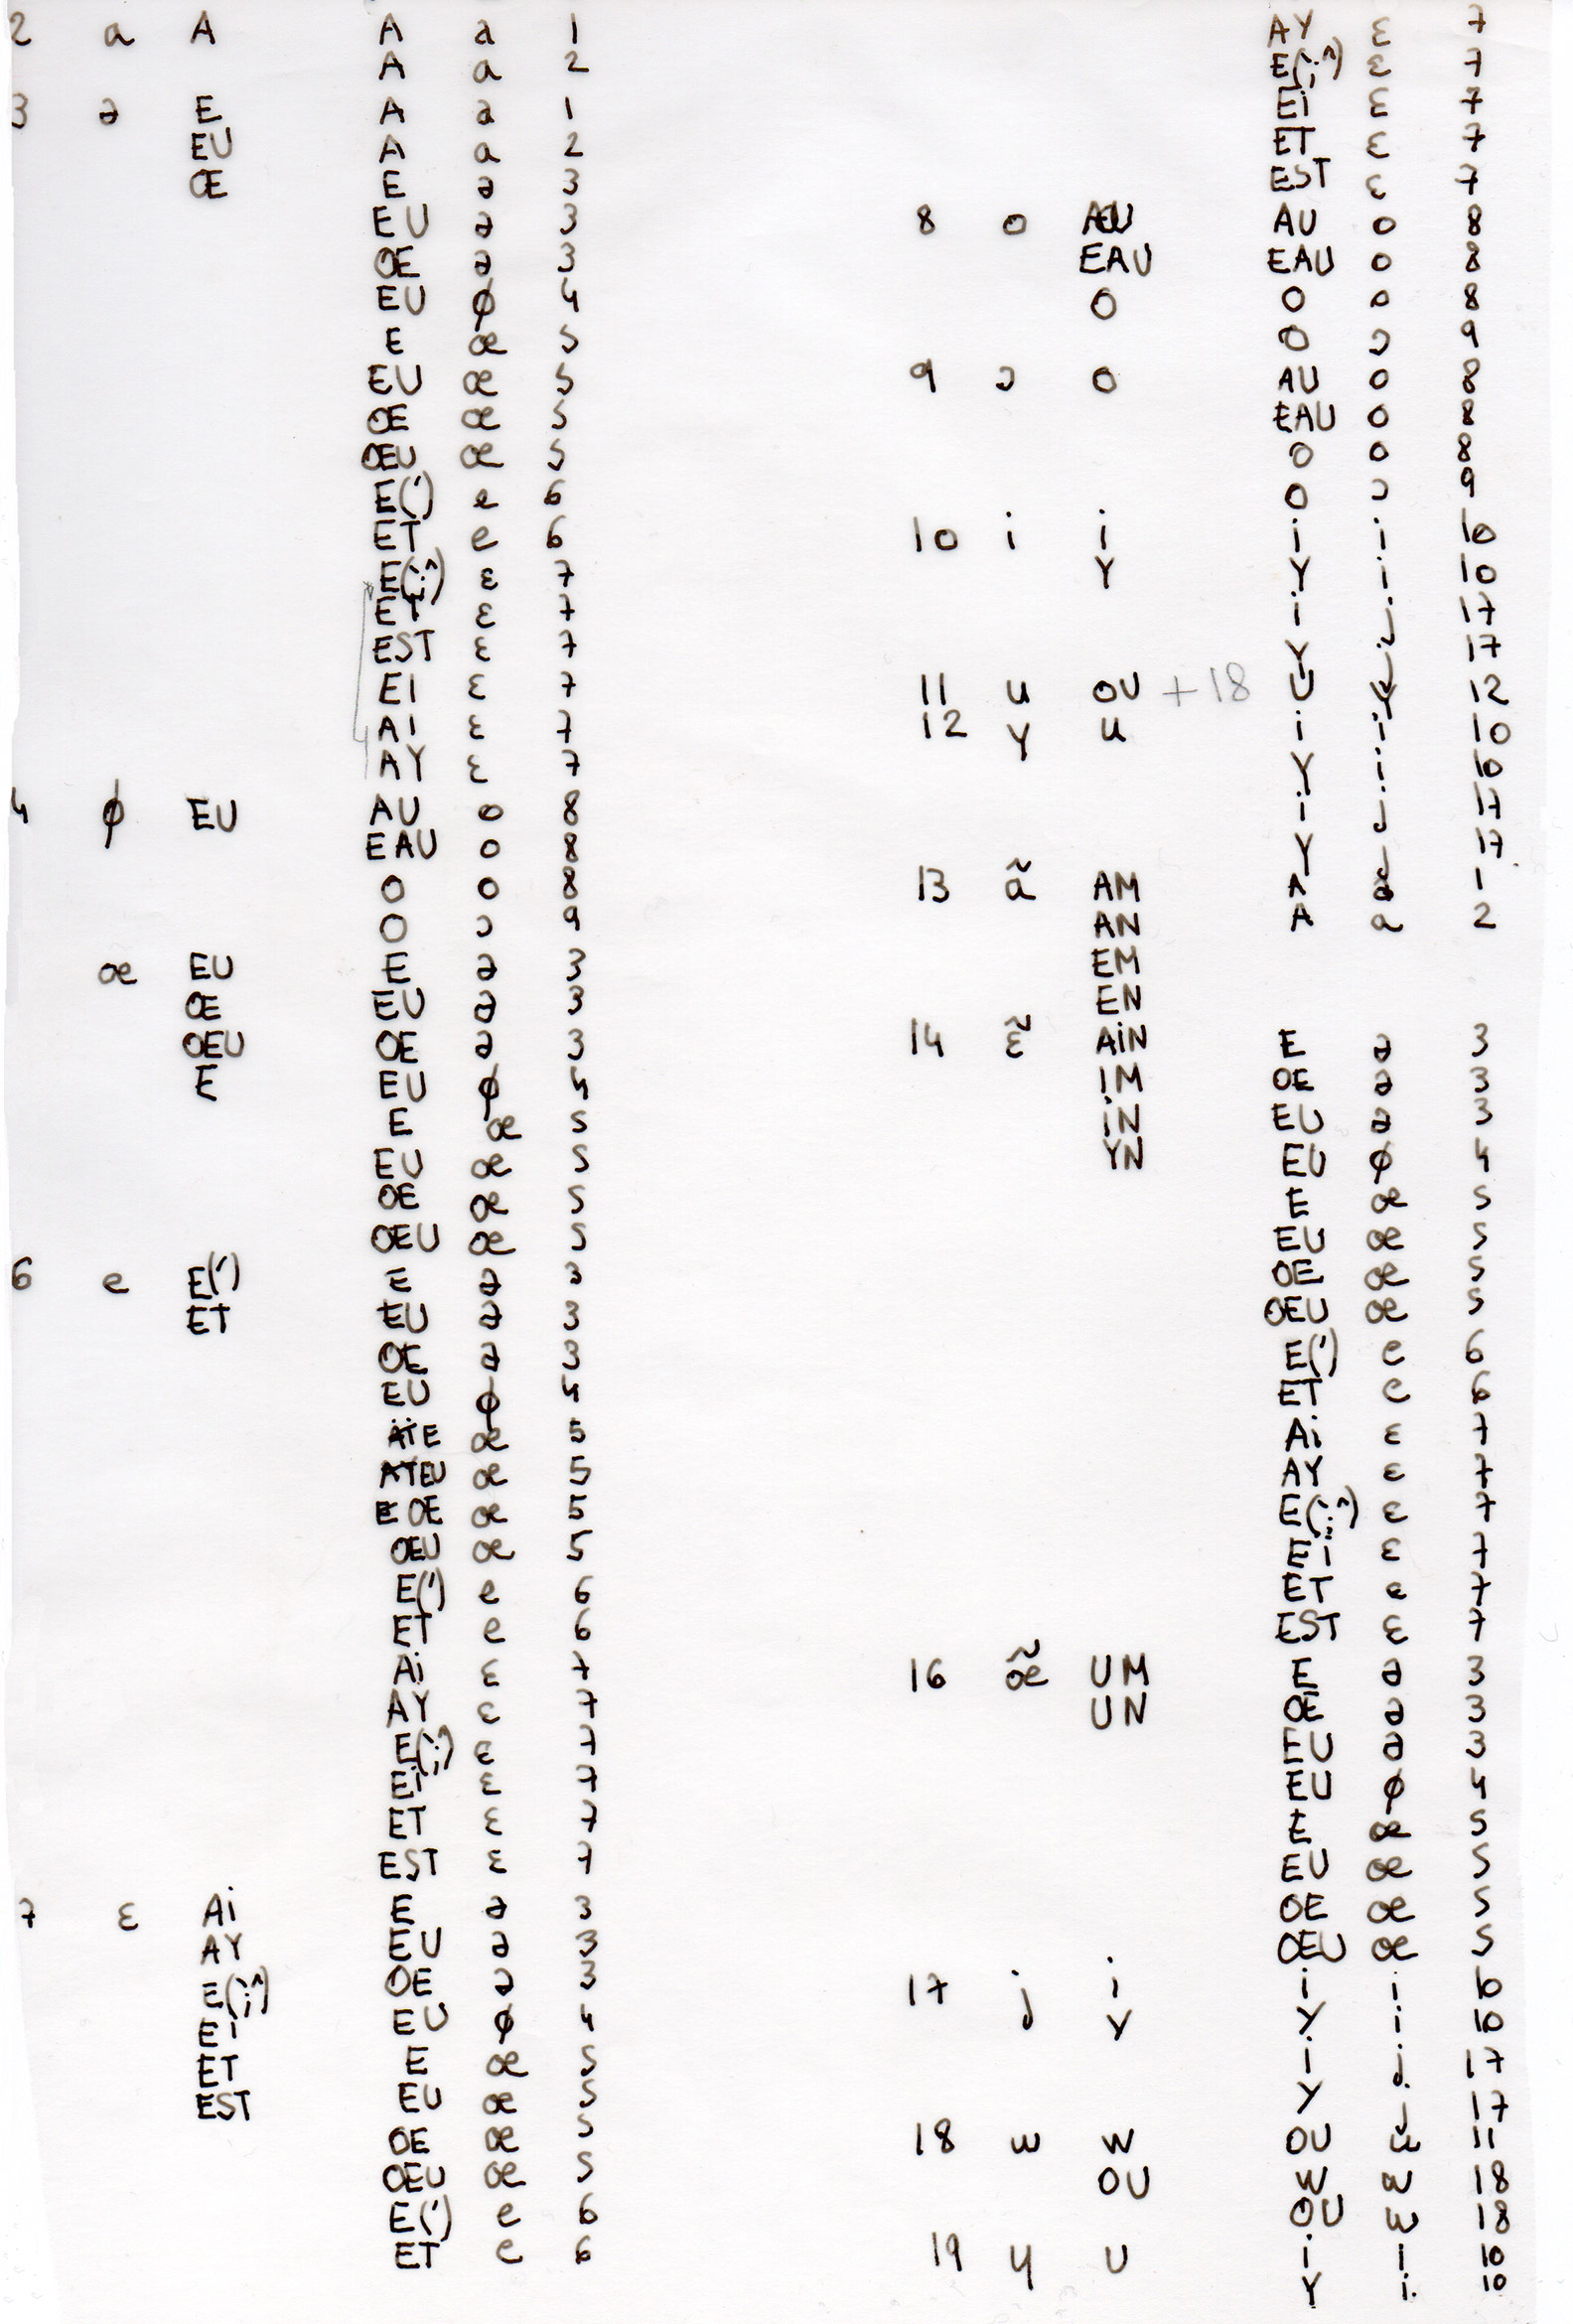 2 a A A a 1
A a 2
3 ə E A a 1
EU A a 2
OE E ə 3
EU ə 3
OE ə 3
EU ϕ 4
E œ 5
EU œ 5
OE œ 5
OEU œ 5
E(') e 6
ET e 6
E(`¨^) ε 7
ET ε 7
EST ε 7
EI ε 7
AI ε 7
AY ε 7
4 ϕ EU AU o 8
EAU o 8
O o 8
O ɔ 9
œ EU E ə 3
OE EU ə 3
OEU OE ə 3
E EU ϕ 4
E œ 5
EU œ 5
OE œ 5
OEU œ 5
6 e E(') E ə 3
ET EU ə 3
OE ə 3
EU ϕ 4
E œ 5
EU œ 5
OE œ 5
OEU œ 5
E(') e 6
ET e 6
Ai ε 7
AY ε 7
E(`¨^) ε 7
Ei ε 7
ET ε 7
EST ε 7
7 ε Ai E ə 3
AY EU ə 3
E(`¨^) OE ə 3
Ei EU ϕ 4
ET E œ 5
EST EU œ 5
OE œ 5
OEU œ 5
E(') e 6
ET e 6
AY ε 7
E(`¨^) ε 7
Ei ε 7
ET ε 7
EST ε 7
8 o AU AU o 8
EAU EAU o 8
O O o 8
O ɔ 9
9 ɔ O AU o 8
EAU o 8
O o 8
O ɔ 9
10 i i i i 10
Y Y i 10
i j 17
Y j 17
11 u OU +18 U y 12
12 y u i i 10
Y i 10
i j 17
Y j 17
13 ã AM A a 1
AN A a 2
EM
EN
14 ε̃ AiN E ə 3
IM OE ə 3
iN EU ə 3
YN EU ϕ 4
E œ 5
EU œ 5
OE œ 5
OEU œ 5
E(') e 6
ET e 6
Ai ε 7
AY ε 7
E(`¨^) ε 7
Ei ε 7
ET ε 7
EST ε 7
16 œ̃ UM E ə 3
UN OE ə 3
EU ə 3
EU ϕ 4
E œ 5
EU œ 5
OE œ 5
OEU œ 5
17 j i i i 10
Y Y i 10
i j 17
Y j 17
18 w W OU 11
OU W w 18
OU w 18
19 ɥ U i i 10
Y i 10